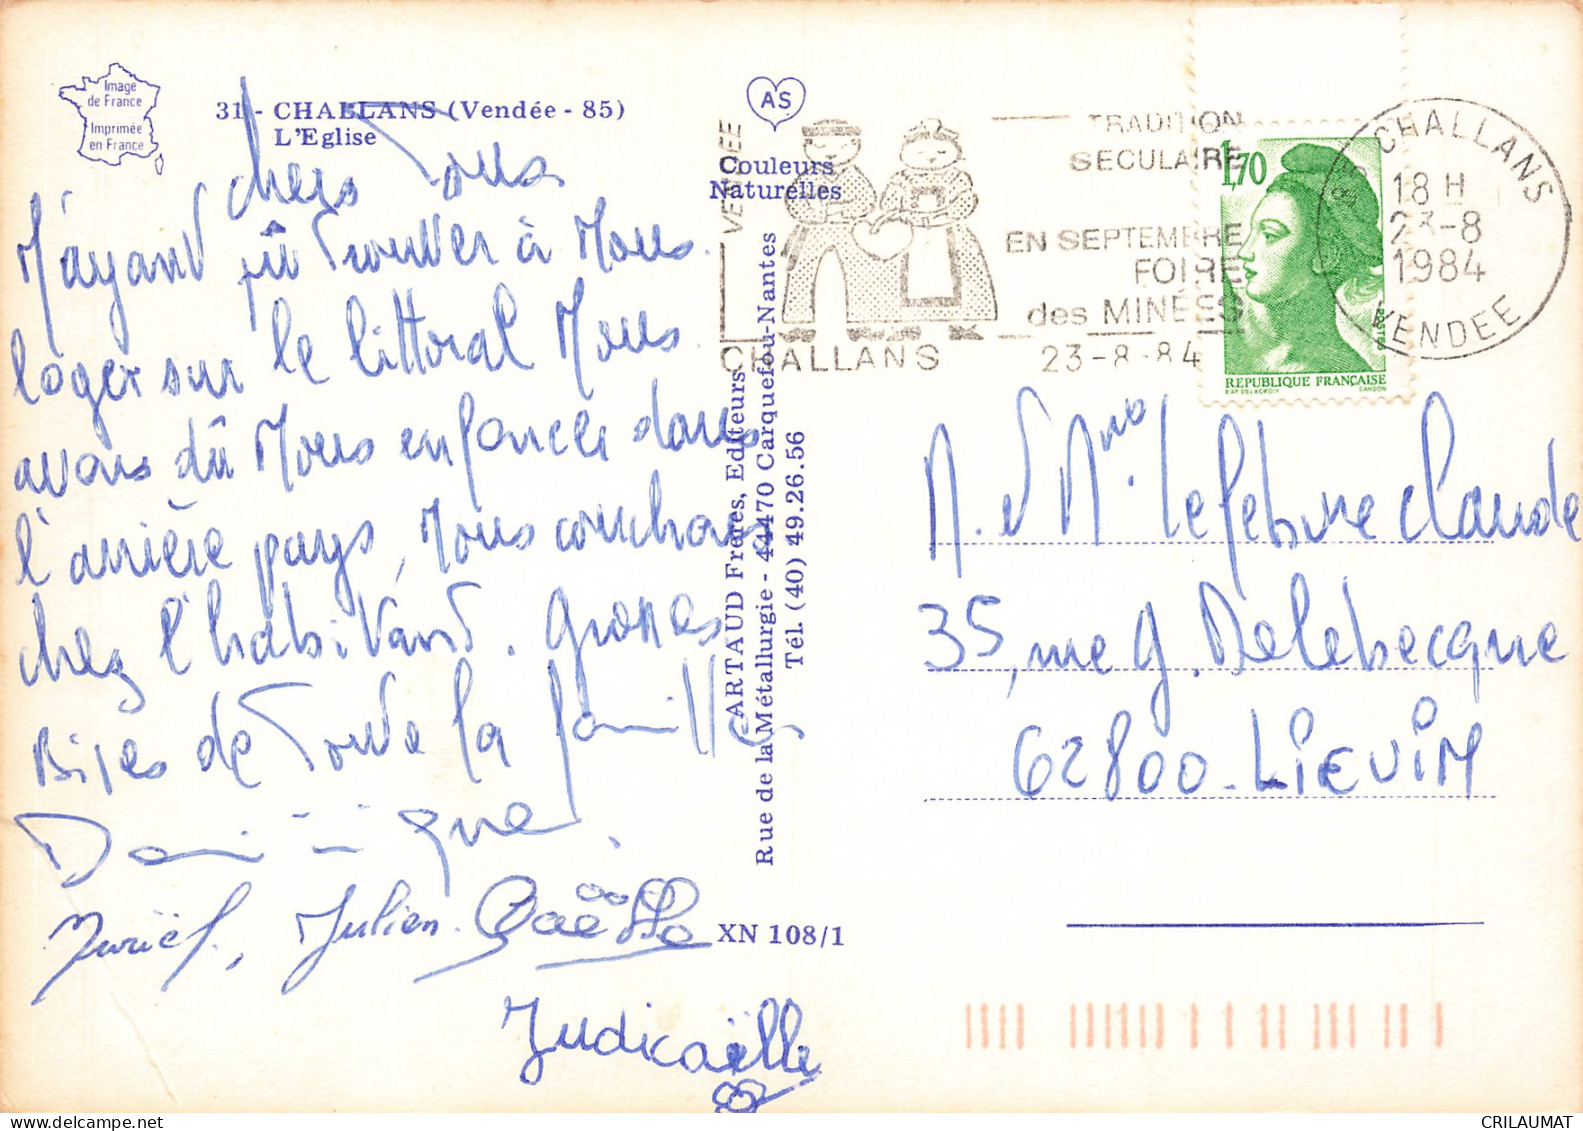 Image
de France
Imprimée
en France
31 - CHALLANS (Vendée - 85)
L'Eglise
AS
Couleurs
Naturelles
chers Tous
N'ayant pû trouver à Nous
loger sur le littoral Nous
avons dû Nous enfoncer dans
l'arrière pays, Nous couchons
chez l'habitant. Grosses
Bises de toute la famille
Dominique
Muriel, Julien, Gaëlle
Judicaëlle
ARTAUD Frères, Editeurs
Rue de la Métallurgie - 44470 Carquefou-Nantes
Tél. (40) 49.26.56
XN 108/1
VENDEE
CHALLANS
TRADITION
SECULAIRE
EN SEPTEMBRE
FOIRE
des MINÉES
23-8-84
1,70
POSTES
REPUBLIQUE FRANÇAISE
D'AP. DELACROIX GANDON
85 CHALLANS
18 H
23-8
1984
VENDEE
M. et Mme Lefebvre Claude
35, rue G. Delebecque
62800 - LIEVIN
CRILAUMAT